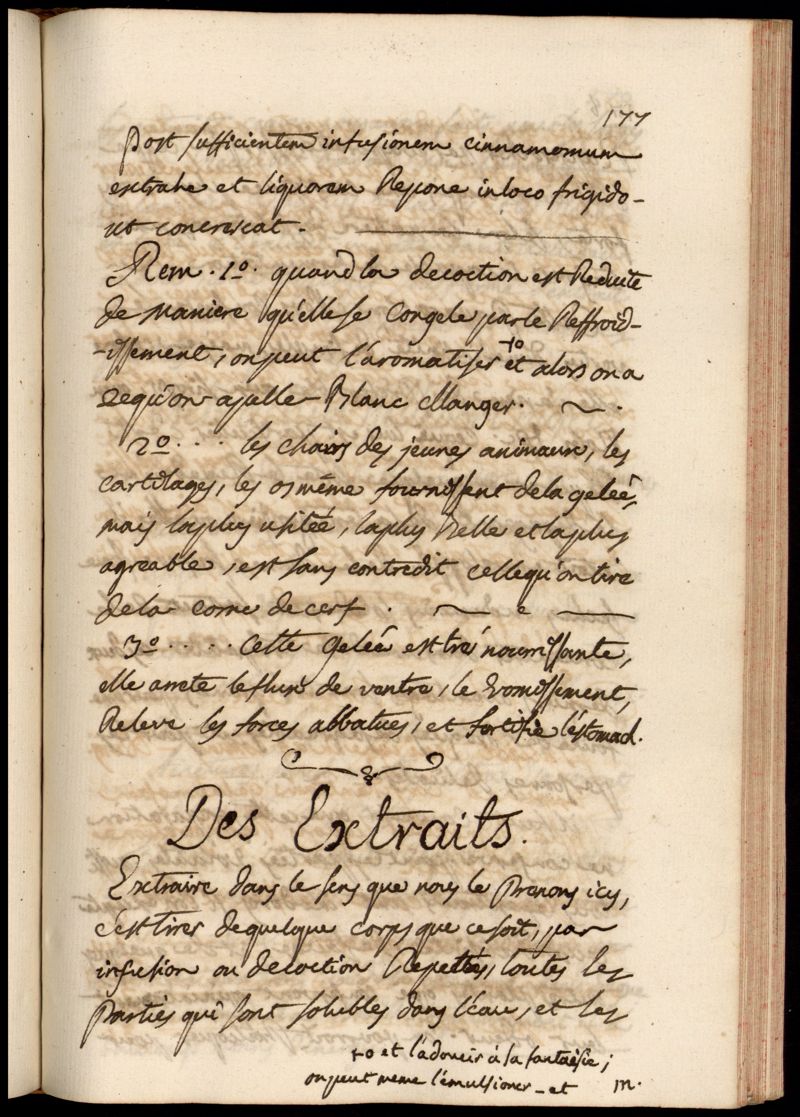 177
Post sufficientem infusionem cinnamomum
extrahe et liquorem Repone in loco frigido
ut concrescat.
Rem. 1o. quand la decoction est Reduite
de maniere qu'elle se Congele par le Reffroid-
-issement, on peut l'aromatiser +o et alors on a
ce qu'on apelle Blanc Manger.
2o... les chairs des jeunes animaux, les
cartilages, les os même fournissent de la geleé,
mais la plus usiteé, la plus Belle et la plus
agreable, est sans contredit celle qu'on tire
de la corne de cerf.
3o.... Cette geleé est tré nourrissante,
elle arrete le flux de ventre, le vomissement,
Releve les forces abbatues, et fortifie l'éstomac.
Des Extraits.
Extraire dans le sens que nous le Prenons icy,
c'est tirer de quelque corps que ce soit, par
infusion ou decoction Repetteés, toutes les
Partiés qui sont solubles dans l'éau, et les
+o et l'adoucir à sa fantaésie;
on peut meme l'émulsioner - et m.